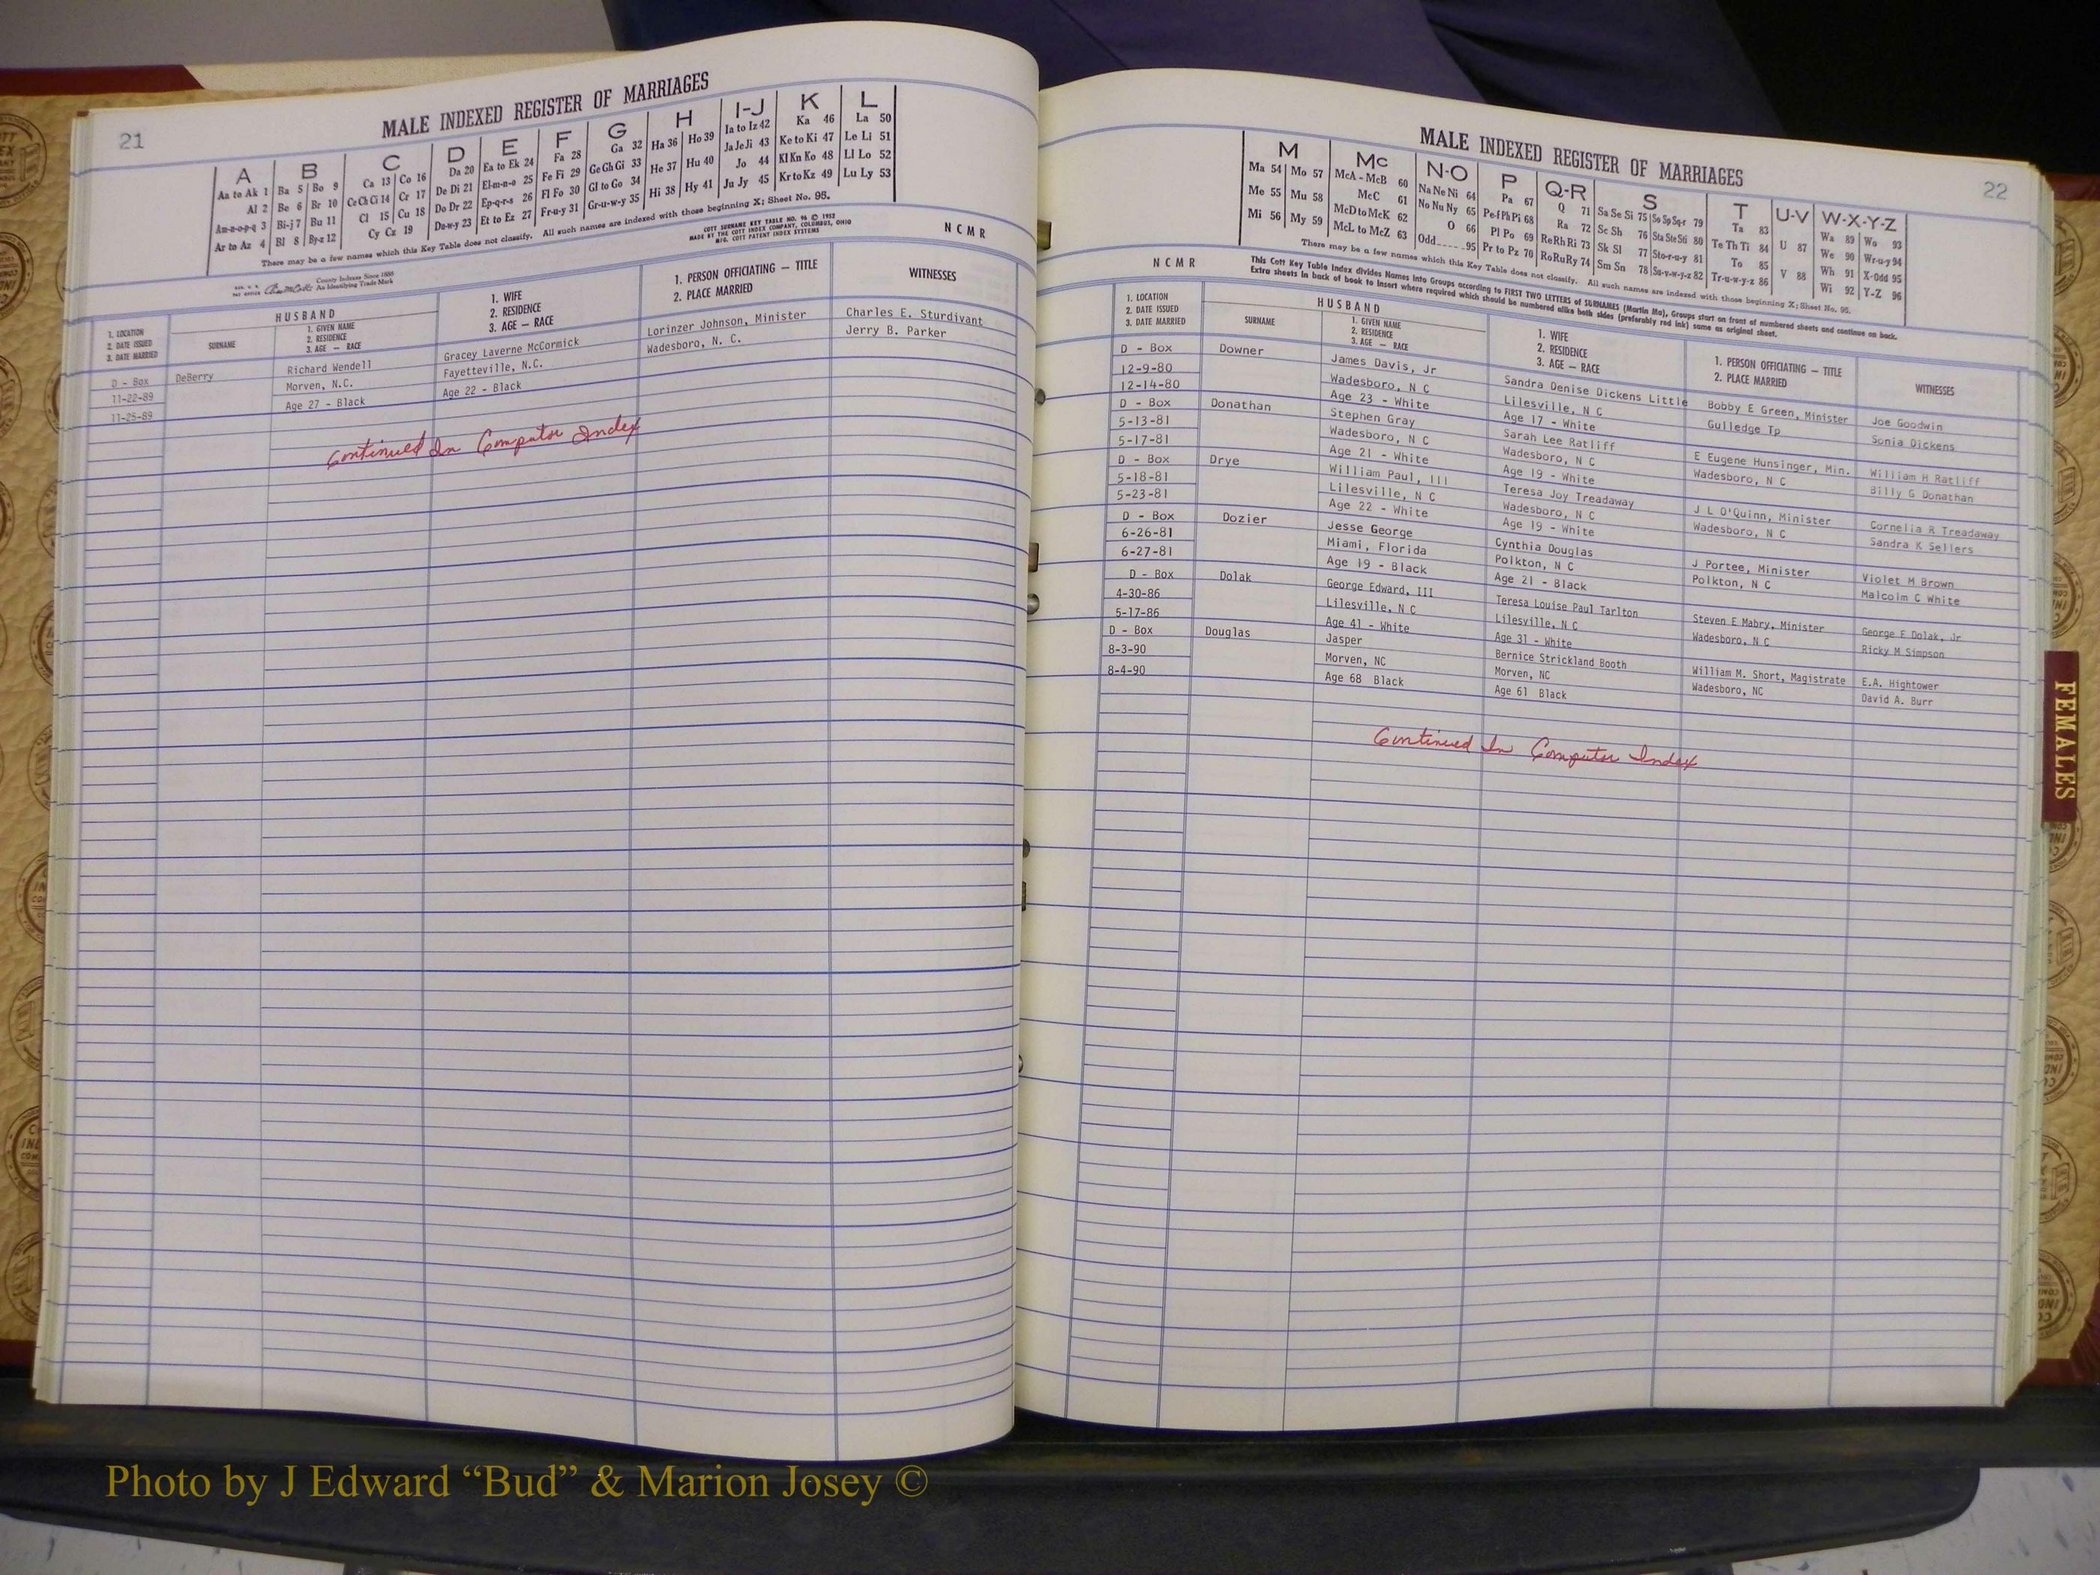 21
MALE INDEXED REGISTER OF MARRIAGES
A B C D E F G H I-J K L
Aa to Ak 1 Ba 5 Bo 9 Ca 13 Co 16 Da 20 Ea to Ek 24 Fa 28 Ga 32 Ha 36 Ho 39 Ia to Iz 42 Ka 46 La 50
Al 2 Be 6 Br 10 Ce Ch Ci 14 Cr 17 De Di 21 El-m-n-o 25 Fe Fi 29 Ge Gh Gi 33 He 37 Hu 40 Ja Je Ji 43 Ke to Ki 47 Le Li 51
Am-n-o-p-q 3 Bi-j 7 Bu 11 Cl 15 Cu 18 Do Dr 22 Ep-q-r-s 26 Fl Fo 30 Gl to Go 34 Hi 38 Hy 41 Jo 44 Kl Kn Ko 48 Ll Lo 52
Ar to Az 4 Bl 8 By-z 12 Cy Cz 19 Du-w-y 23 Et to Ez 27 Fr-u-y 31 Gr-u-w-y 35 Ju Jy 45 Kr to Kz 49 Lu Ly 53
There may be a few names which this Key Table does not classify. All such names are indexed with those beginning X; Sheet No. 96.
COTT SURNAME KEY TABLE NO. 96 © 1952
MADE BY THE COTT INDEX COMPANY, COLUMBUS, OHIO
MFG. COTT PATENT INDEX SYSTEMS
N C M R
County Indexes Since 1888
An Identifying Trade Mark
1. LOCATION
2. DATE ISSUED
3. DATE MARRIED
HUSBAND
SURNAME
1. GIVEN NAME
2. RESIDENCE
3. AGE — RACE
1. WIFE
2. RESIDENCE
3. AGE — RACE
1. PERSON OFFICIATING — TITLE
2. PLACE MARRIED
WITNESSES
D - Box DeBerry Richard Wendell Gracey Laverne McCormick Lorinzer Johnson, Minister Charles E. Sturdivant
11-22-89 Morven, N.C. Fayetteville, N.C. Wadesboro, N. C. Jerry B. Parker
11-25-89 Age 27 - Black Age 22 - Black
Continued In Computer Index
MALE INDEXED REGISTER OF MARRIAGES
22
M Mc N-O P Q-R S T U-V W-X-Y-Z
Ma 54 Mo 57 McA - McB 60 Na Ne Ni 64 Pa 67 Q 71 Sa Se Si 75 So Sp Sq-r 79 Ta 83 U 87 Wa 89 Wo 93
Me 55 Mu 58 McC 61 No Nu Ny 65 Pe-f Ph Pi 68 Ra 72 Sc Sh 76 Sta Ste Sti 80 Te Th Ti 84 V 88 We 90 Wr-u-y 94
Mi 56 My 59 McD to McK 62 O 66 Pl Po 69 Re Rh Ri 73 Sk Sl 77 Sto-r-u-y 81 To 85 Wh 91 X-Odd 95
McL to McZ 63 Odd 95 Pr to Pz 70 Ro Ru Ry 74 Sm Sn 78 Su-v-w-y-z 82 Tr-u-w-y-z 86 Wi 92 Y-Z 96
There may be a few names which this Key Table does not classify. All such names are indexed with those beginning X; Sheet No. 96.
N C M R
This Cott Key Table Index divides Names into Groups according to FIRST TWO LETTERS of SURNAMES (Martin Ma), Groups start on front of numbered sheets and continue on back.
Extra sheets in back of book to insert where required which should be numbered alike both sides (preferably red ink) same as original sheet.
1. LOCATION
2. DATE ISSUED
3. DATE MARRIED
HUSBAND
SURNAME
1. GIVEN NAME
2. RESIDENCE
3. AGE — RACE
1. WIFE
2. RESIDENCE
3. AGE — RACE
1. PERSON OFFICIATING — TITLE
2. PLACE MARRIED
WITNESSES
D - Box Downer James Davis, Jr Sandra Denise Dickens Little Bobby E Green, Minister Joe Goodwin
12-9-80 Wadesboro, N C Lilesville, N C Gulledge Tp Sonia Dickens
12-14-80 Age 23 - White Age 17 - White
D - Box Donathan Stephen Gray Sarah Lee Ratliff E Eugene Hunsinger, Min. William H Ratliff
5-13-81 Wadesboro, N C Wadesboro, N C Wadesboro, N C Billy G Donathan
5-17-81 Age 21 - White Age 19 - White
D - Box Drye William Paul, III Teresa Joy Treadaway J L O'Quinn, Minister Cornelia R Treadaway
5-18-81 Lilesville, N C Wadesboro, N C Wadesboro, N C Sandra K Sellers
5-23-81 Age 22 - White Age 19 - White
D - Box Dozier Jesse George Cynthia Douglas J Portee, Minister Violet M Brown
6-26-81 Miami, Florida Polkton, N C Polkton, N C Malcolm C White
6-27-81 Age 19 - Black Age 21 - Black
D - Box Dolak George Edward, III Teresa Louise Paul Tarlton Steven E Mabry, Minister George E Dolak, Jr
4-30-86 Lilesville, N C Lilesville, N C Wadesboro, N C Ricky M Simpson
5-17-86 Age 41 - White Age 31 - White
D - Box Douglas Jasper Bernice Strickland Booth William M. Short, Magistrate E.A. Hightower
8-3-90 Morven, NC Morven, NC Wadesboro, NC David A. Burr
8-4-90 Age 68 Black Age 61 Black
Continued In Computer Index
FEMALES
Photo by J Edward “Bud” & Marion Josey ©